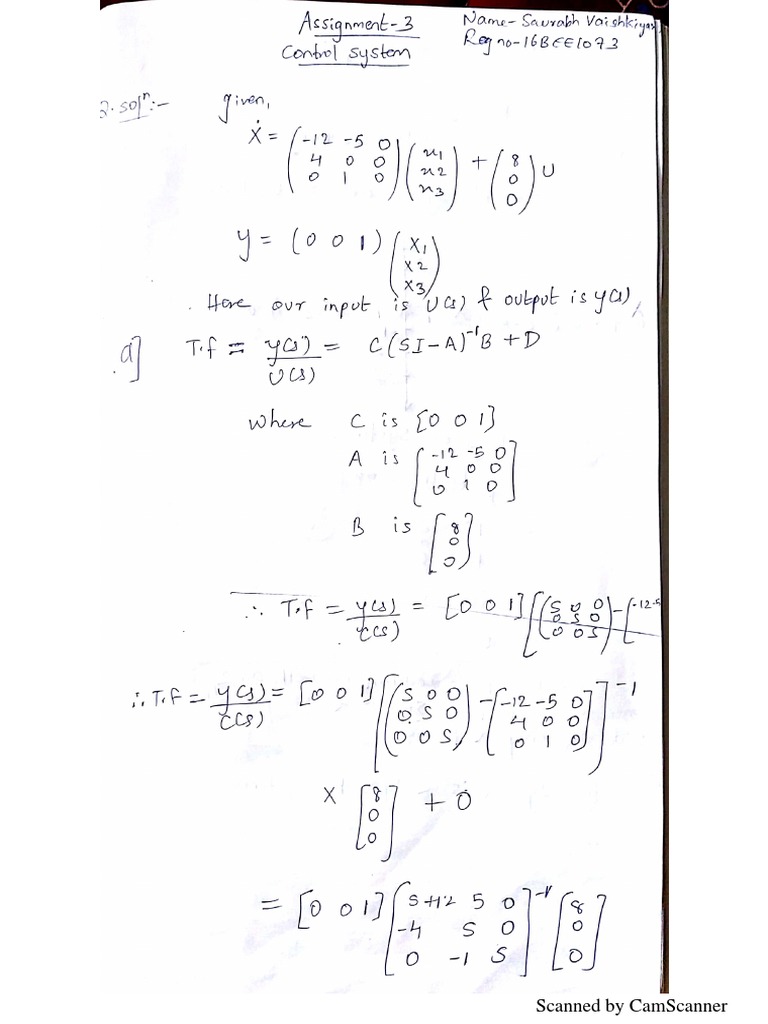 Assignment-3
Control system
Name- Saurabh Vaishkiyar
Reg no-16BEE1073
2. solⁿ:- given,
Ẋ = (-12 -5 0
4 0 0
0 1 0) (x1
x2
x3) + (8
0
0) U
y = (0 0 1) (x1
x2
x3)
Here our input is U(s) & output is y(s),
a] T.f = y(s)/U(s) = C(SI-A)⁻¹B + D
where C is [0 0 1]
A is [-12 -5 0
4 0 0
0 1 0]
B is [8
0
0]
∴ T.f = y(s)/C(s) = [0 0 1] [(S 0 0
0 S 0
0 0 S) - [-12 -5
∴ T.f = y(s)/C(s) = [0 0 1] [(S 0 0
0 S 0
0 0 S) - [-12 -5 0
4 0 0
0 1 0]]⁻¹
X [8
0
0] + 0
= [0 0 1] [S+12 5 0
-4 S 0
0 -1 S]⁻¹ [8
0
0]
Scanned by CamScanner